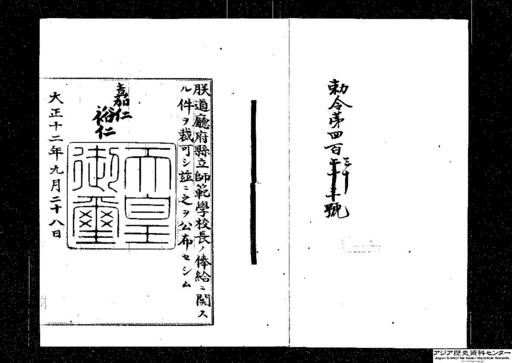 勅令第四百三十號
朕道廳府縣立師範學校長ノ俸給ニ関ス
ル件ヲ裁可シ茲ニ之ヲ公布セシム
嘉仁
裕仁
天皇御璽
大正十二年九月二十八日
アジア歴史資料センター
Japan Center for Asian Historical Records